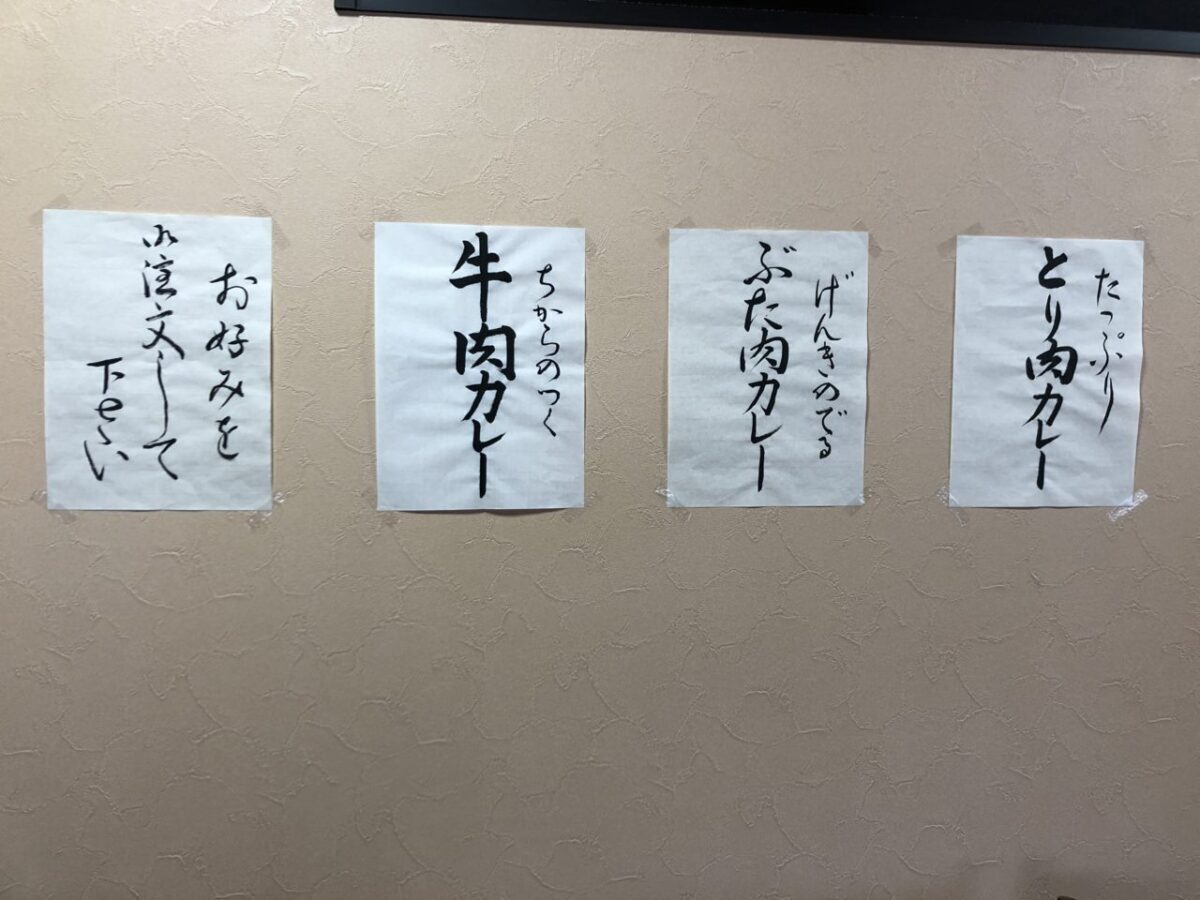 たっぷり
とり肉カレー
げんきのでる
ぶた肉カレー
ちからのつく
牛肉カレー
お好みを
御注文して
下さい